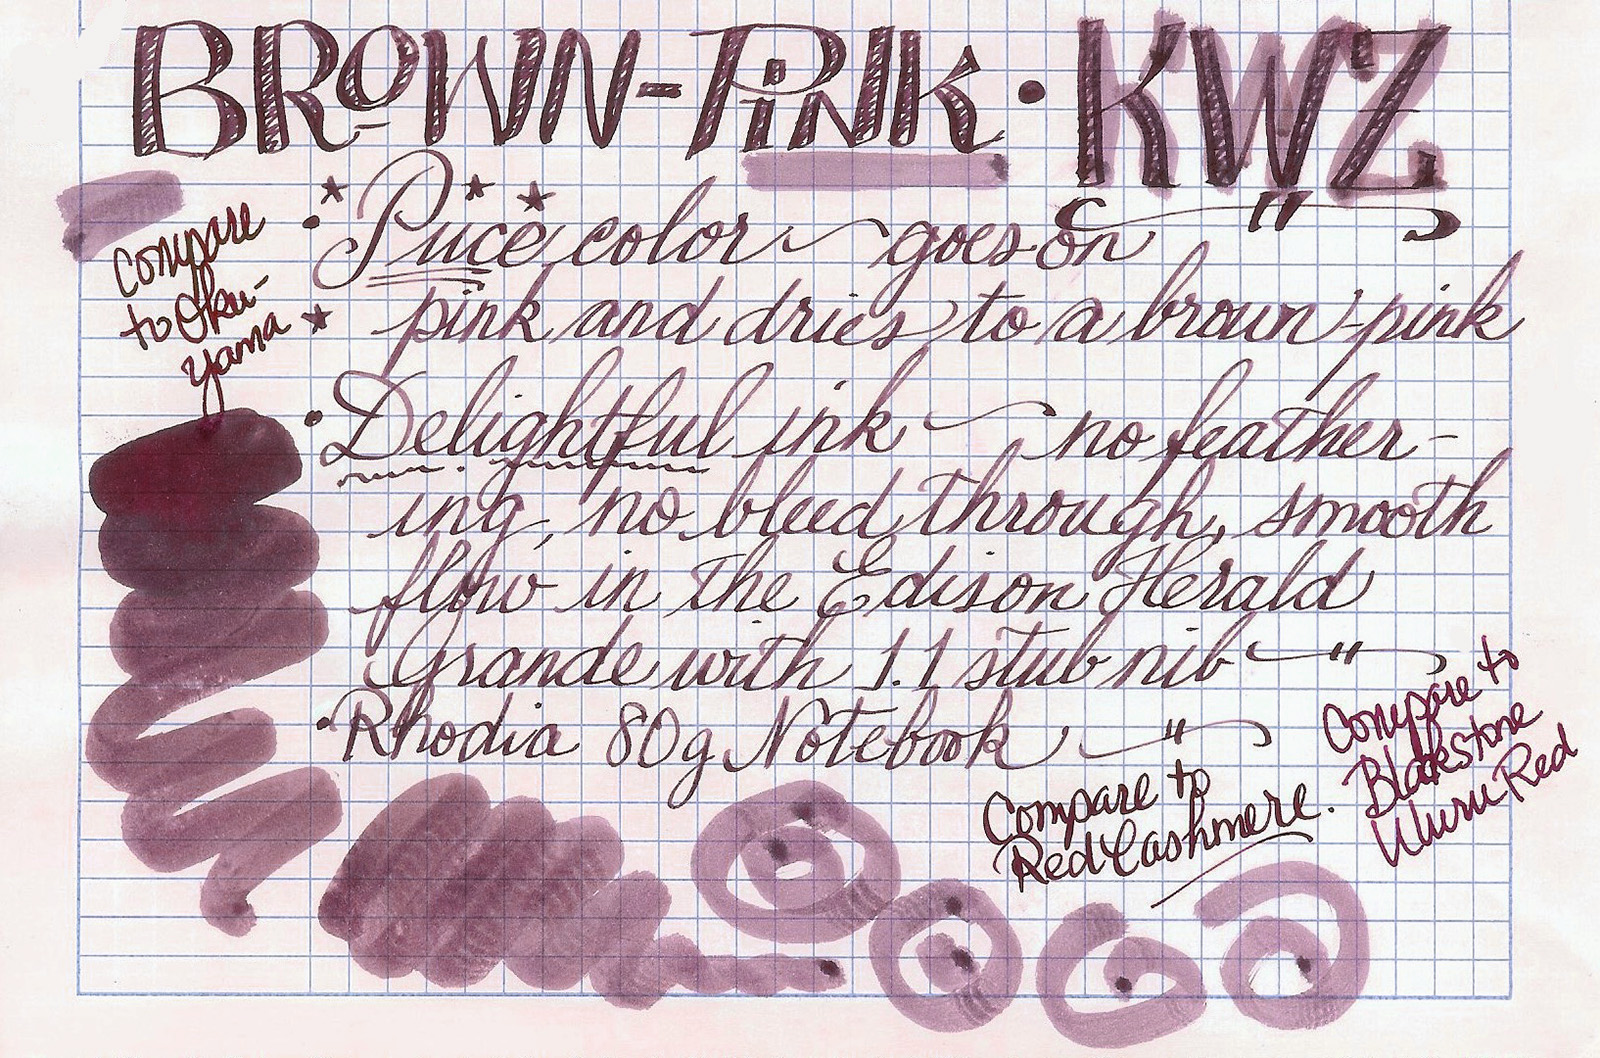 BROWN-PINK • KWZ
• Puce color ~ goes on
pink and dries to a brown-pink
Compare
to Oku-
yama
• Delightful ink ~ no feather-
ing, no bleed through, smooth
flow in the Edison Herald
Grande with 1.1 stub nib
• Rhodia 80g Notebook
Compare to
Red Cashmere.
Compare to
Blackstone
Uluru Red